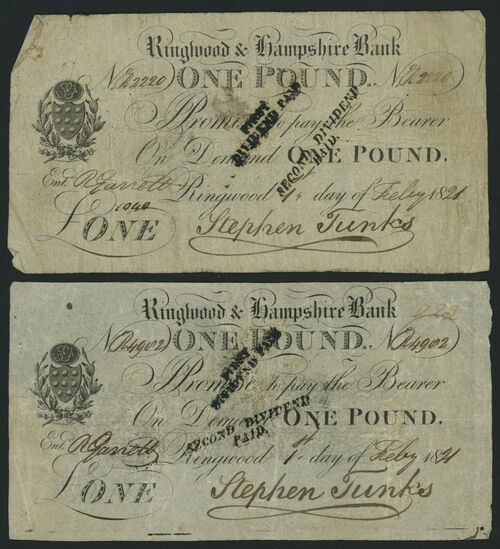 Ringwood & Hampshire Bank
No. A2220 ONE POUND. No. A2220
I Promise to pay the Bearer
On Demand ONE POUND.
FIRST
DIVIDEND PAID
SECOND DIVIDEND
PAID.
Ringwood 1st day of Feby 1821
Entd. R Garrett
1040
£ ONE
Stephen Tunks
Ringwood & Hampshire Bank
No. A4902 ONE POUND. No. A4902
I Promise to pay the Bearer
On Demand ONE POUND.
FIRST
DIVIDEND PAID
SECOND DIVIDEND
PAID.
Entd. R Garrett Ringwood 1st day of Feby 1821
£ ONE
Stephen Tunks